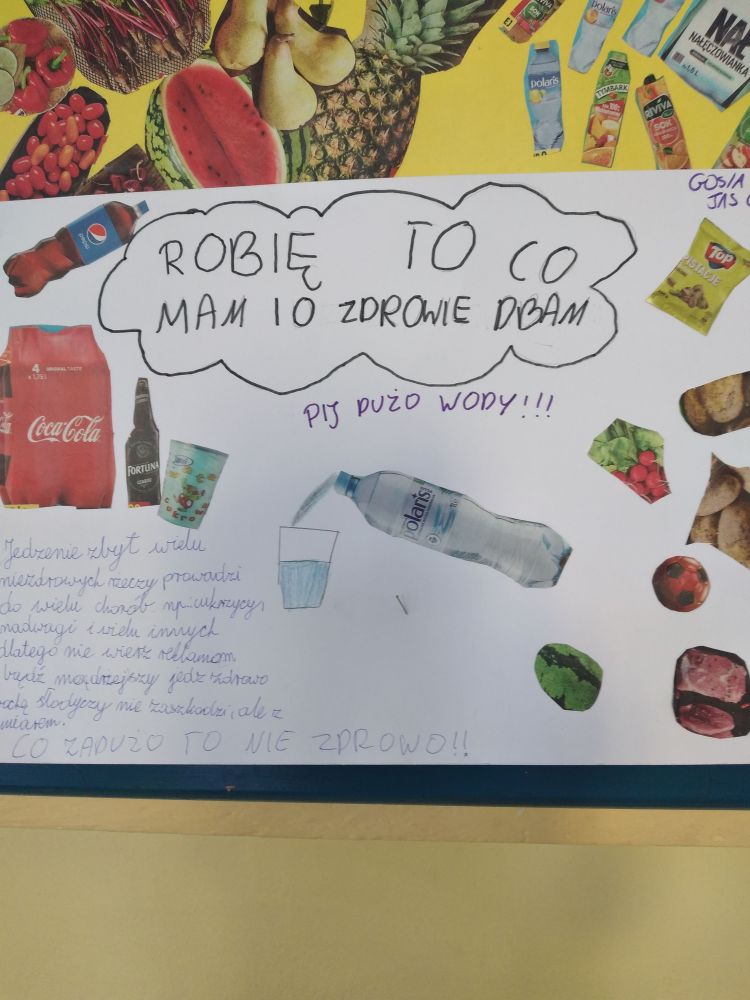 polaris
TYMBARK
RIVIVA
SOK
NAŁĘCZOWIANKA
GOSIA
JAŚ
pepsi
ROBIĘ TO CO
MAM I O ZDROWIE DBAM
Top
PISTACJE
PIJ DUŻO WODY!!!
4 ORIGINAL TASTE
x 1,75 L
Coca-Cola
FORTUNA
CZARNE
polaris
Jedzenie zbyt wielu
niezdrowych rzeczy prowadzi
do wielu chorób np: cukrzycy,
nadwagi i wielu innych
dlatego nie wierz reklamom
bądź mądrzejszy jedz zdrowo
słodyczy nie zaszkodzi, ale z
umiarem.
CO ZADUŻO TO NIE ZDROWO!!